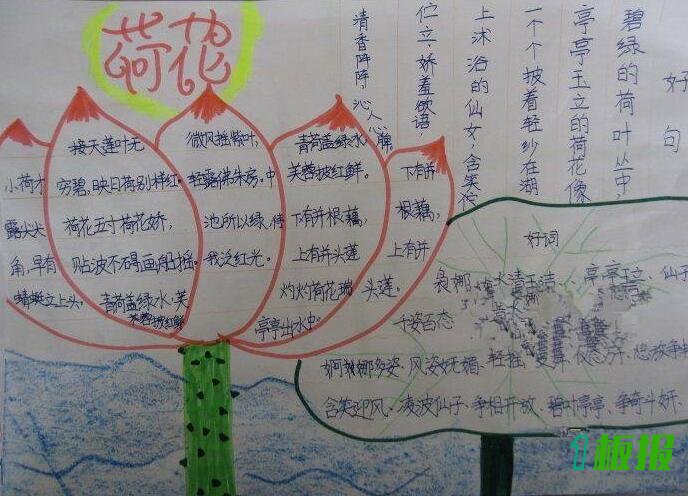 荷花
小荷才
露尖尖
角,早有
蜻蜓立上头。
接天莲叶无
穷碧,映日荷别样红。
荷花五寸荷花娇,
贴波不碍画船摇。
青荷盖绿水,芙
芙蓉披红鲜
微风摇紫叶,
轻露拂朱房。中
池所以绿,待
我泛红光。
青荷盖绿水,
芙蓉披红鲜。
下有并根藕,
上有并头莲
灼灼荷花瑞
亭亭出水中。
下有并
根藕,
上有并
头莲。
好句
碧绿的荷叶丛中,
亭亭玉立的荷花像
一个个披着轻纱在湖
上沐浴的仙女,含笑伫
伫立,娇羞欲语,
清香阵阵,沁人心脾
好词
袅娜、冰清玉洁、亭亭玉立、仙子
千姿百态
婀娜多姿、风姿妩媚、轻摇
含笑迎风、凌波仙子、争相开放、碧叶亭亭、争奇斗妍、
板报
1BANBAO.COM